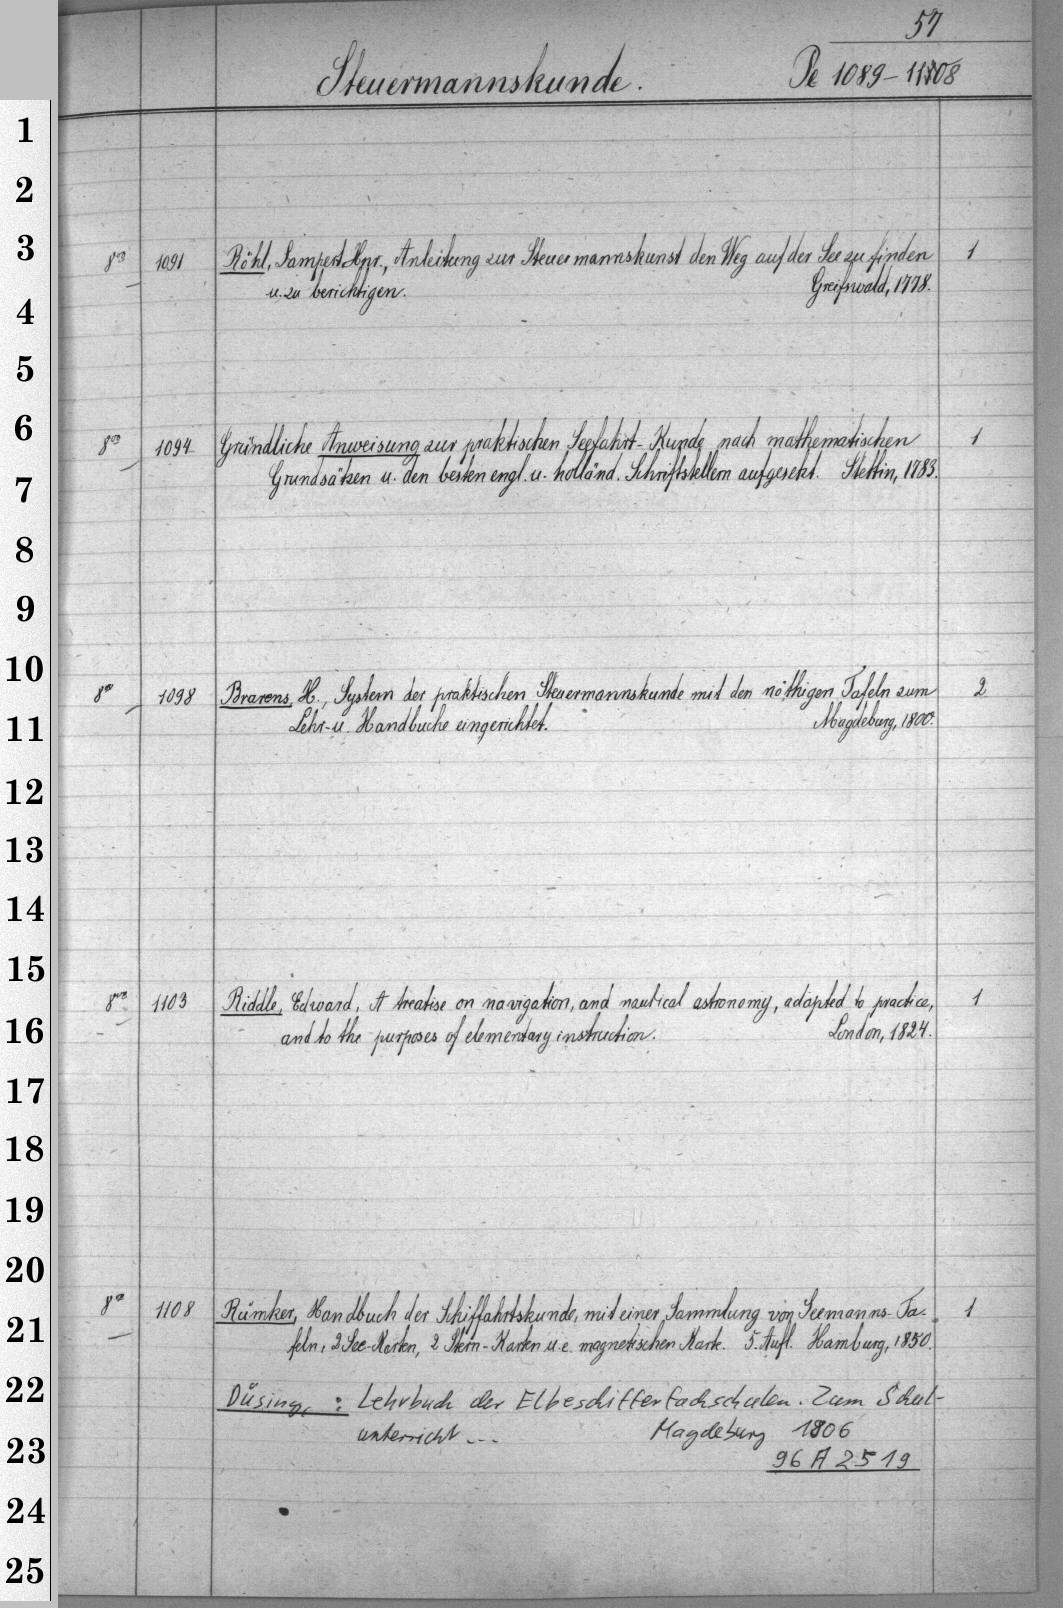 57
Steuermannskunde. Pe 1089-1108
1
2
3
8º 1091 Röhl, Lampert Hnr., Anleitung zur Steuermannskunst den Weg auf der See zu finden 1
u. zu berichtigen. Greifswald, 1778.
4
5
6
8º 1094 Gründliche Anweisung zur praktischen Seefahrt-Kunde nach mathematischen 1
Grundsätzen u. den besten engl. u. holländ. Schriftstellern aufgesetzt. Stettin, 1783.
7
8
9
10
8º 1098 Brarens, H., System der praktischen Steuermannskunde mit den nöthigen Tafeln zum 2
Lehr- u. Handbuche eingerichtet. Magdeburg, 1800.
11
12
13
14
15
8º 1103 Riddle, Edward, A treatise on navigation, and nautical astronomy, adapted to practice, 1
and to the purposes of elementary instruction. London, 1824.
16
17
18
19
20
8º 1108 Rümker, Handbuch der Schiffahrtskunde, mit einer Sammlung von Seemanns-Ta- 1
feln, 2 See-Karten, 2 Stern-Karten u. e. magnetischen Kart. 5. Aufl. Hamburg, 1850.
21
22
Düsing, : Lehrbuch der Elbeschifferfachschulen. Zum Schul-
unterricht ... Magdeburg 1806
23
96 A 2519
24
25